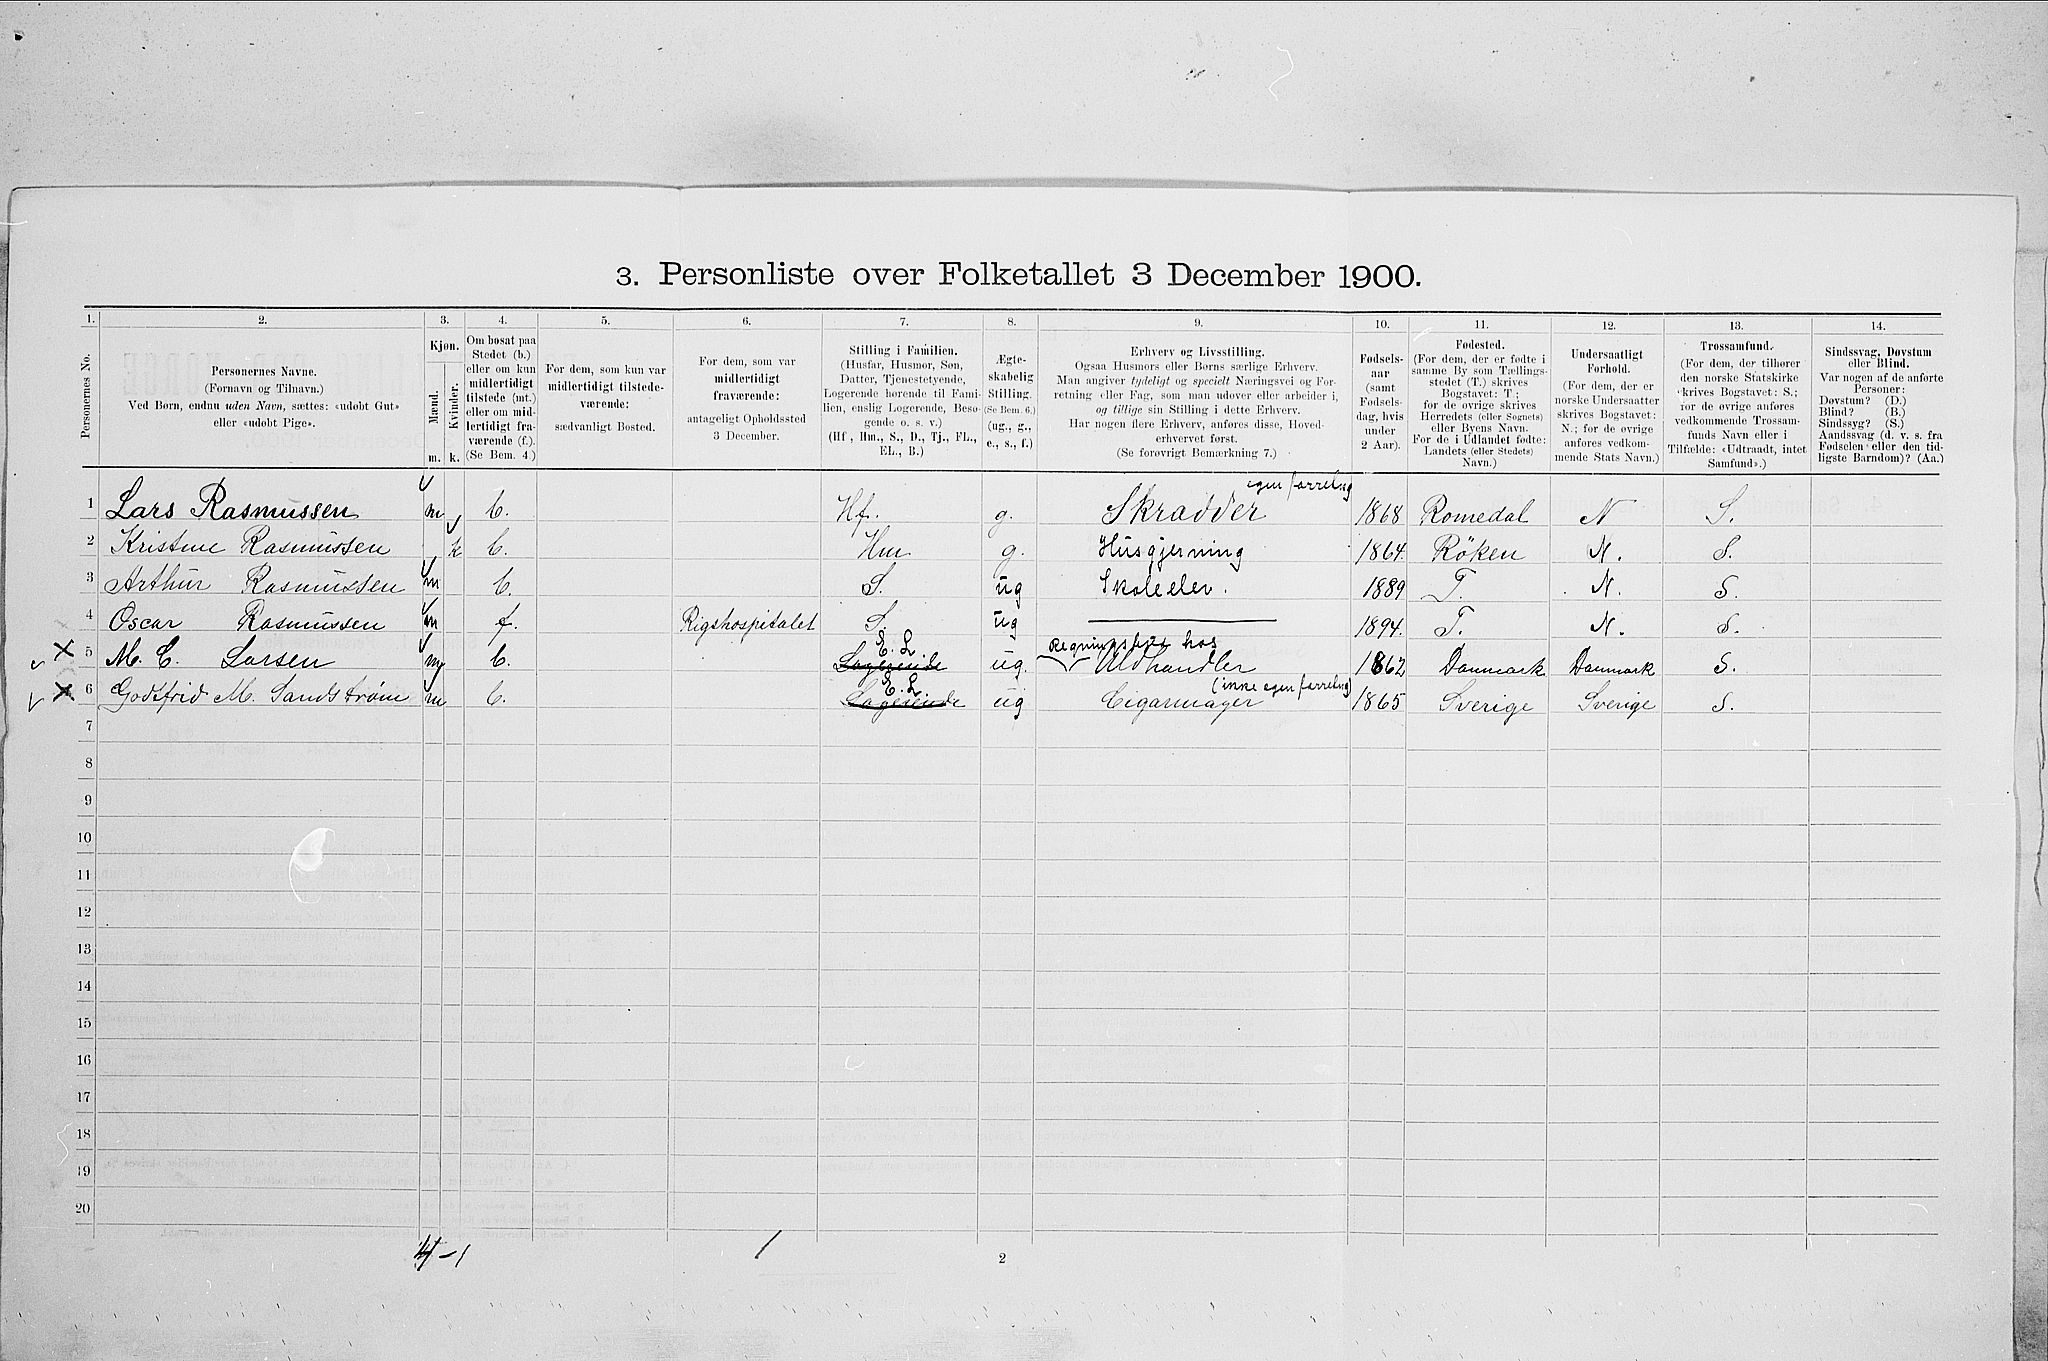 3. Personliste over Folketallet 3 December 1900.
1. 2. 3. 4. 5. 6. 7. 8. 9. 10. 11. 12. 13. 14.
Personernes No.
Personernes Navne.
(Fornavn og Tilnavn.)
Ved Børn, endnu uden Navn, sættes: «udøbt Gut»
eller «udøbt Pige».
Kjøn.
Mænd.
Kvinder.
m. k.
Om bosat paa
Stedet (b.)
eller om kun
midlertidigt
tilstede (mt.)
eller om mid-
lertidigt fra-
værende (f.).
(Se Bem. 4.)
For dem, som kun var
midlertidigt tilstede-
værende:
sædvanligt Bosted.
For dem, som var
midlertidigt
fraværende:
antageligt Opholdssted
3 December.
Stilling i Familien.
(Husfar, Husmor, Søn,
Datter, Tjenestetyende,
Logerende hørende til Fami-
lien, enslig Logerende, Besø-
gende o. s. v.)
(Hf., Hm., S., D., Tj., FL.,
EL., B.)
Ægte-
skabelig
Stilling.
(Se Bem. 6.)
(ug., g.,
e., s., f.)
Erhverv og Livsstilling.
Ogsaa Husmors eller Børns særlige Erhverv.
Man angiver tydeligt og specielt Næringsvei og For-
retning eller Fag, som man udøver eller arbeider i,
og tillige sin Stilling i dette Erhverv.
Har nogen flere Erhverv, anføres disse, Hoved-
erhvervet først.
(Se forøvrigt Bemærkning 7.)
Fødsels-
aar
(samt
Fødsels-
dag, hvis
under
2 Aar).
Fødested.
(For dem, der er fødte i
samme By som Tællings-
stedet (T.) skrives
Bogstavet: T.;
for de øvrige skrives
Herredets (eller Sognets)
eller Byens Navn.
For de i Udlandet fødte:
Landets (eller Stedets)
Navn.)
Undersaatligt
Forhold.
(For dem, der er
norske Undersaatter
skrives Bogstavet:
N.; for de øvrige
anføres vedkom-
mende Stats Navn.)
Trossamfund.
(For dem, der tilhører
den norske Statskirke
skrives Bogstavet: S.;
for de øvrige anføres
vedkommende Trossam-
funds Navn eller i
Tilfælde: «Udtraadt, intet
Samfund».)
Sindssvag, Døvstum
eller Blind.
Var nogen af de anførte
Personer:
Døvstum? (D.)
Blind? (B.)
Sindssyg? (S.)
Aandssvag (d. v. s. fra
Fødselen eller den tid-
ligste Barndom)? (Aa.)
egen forretng
1 Lars Rasmussen m b. Hf. g. Skrædder 1868 Romedal N S.
2 Kristine Rasmussen k b. Hm g. Husgjerning 1864. Røken N. S.
3 Arthur Rasmussen m b. S. ug Skoleelev. 1889 T. N. S.
4 Oscar Rasmussen m f. Rigshospitalet S. ug 1894. T. N. S.
E. L. hos
X 5 M. C. Larsen m b. Logerende ug. Uldhandler 1862 Danmark Danmark S.
E. L (ikke egen forretng)
X 6 Godtfrid M. Sandstrøm m b. Logerende ug Cigarmager 1865 Sverige Sverige S.
7
8
9
10
11
12
13
14
15
16
17
18
19
20
4-1 1
2